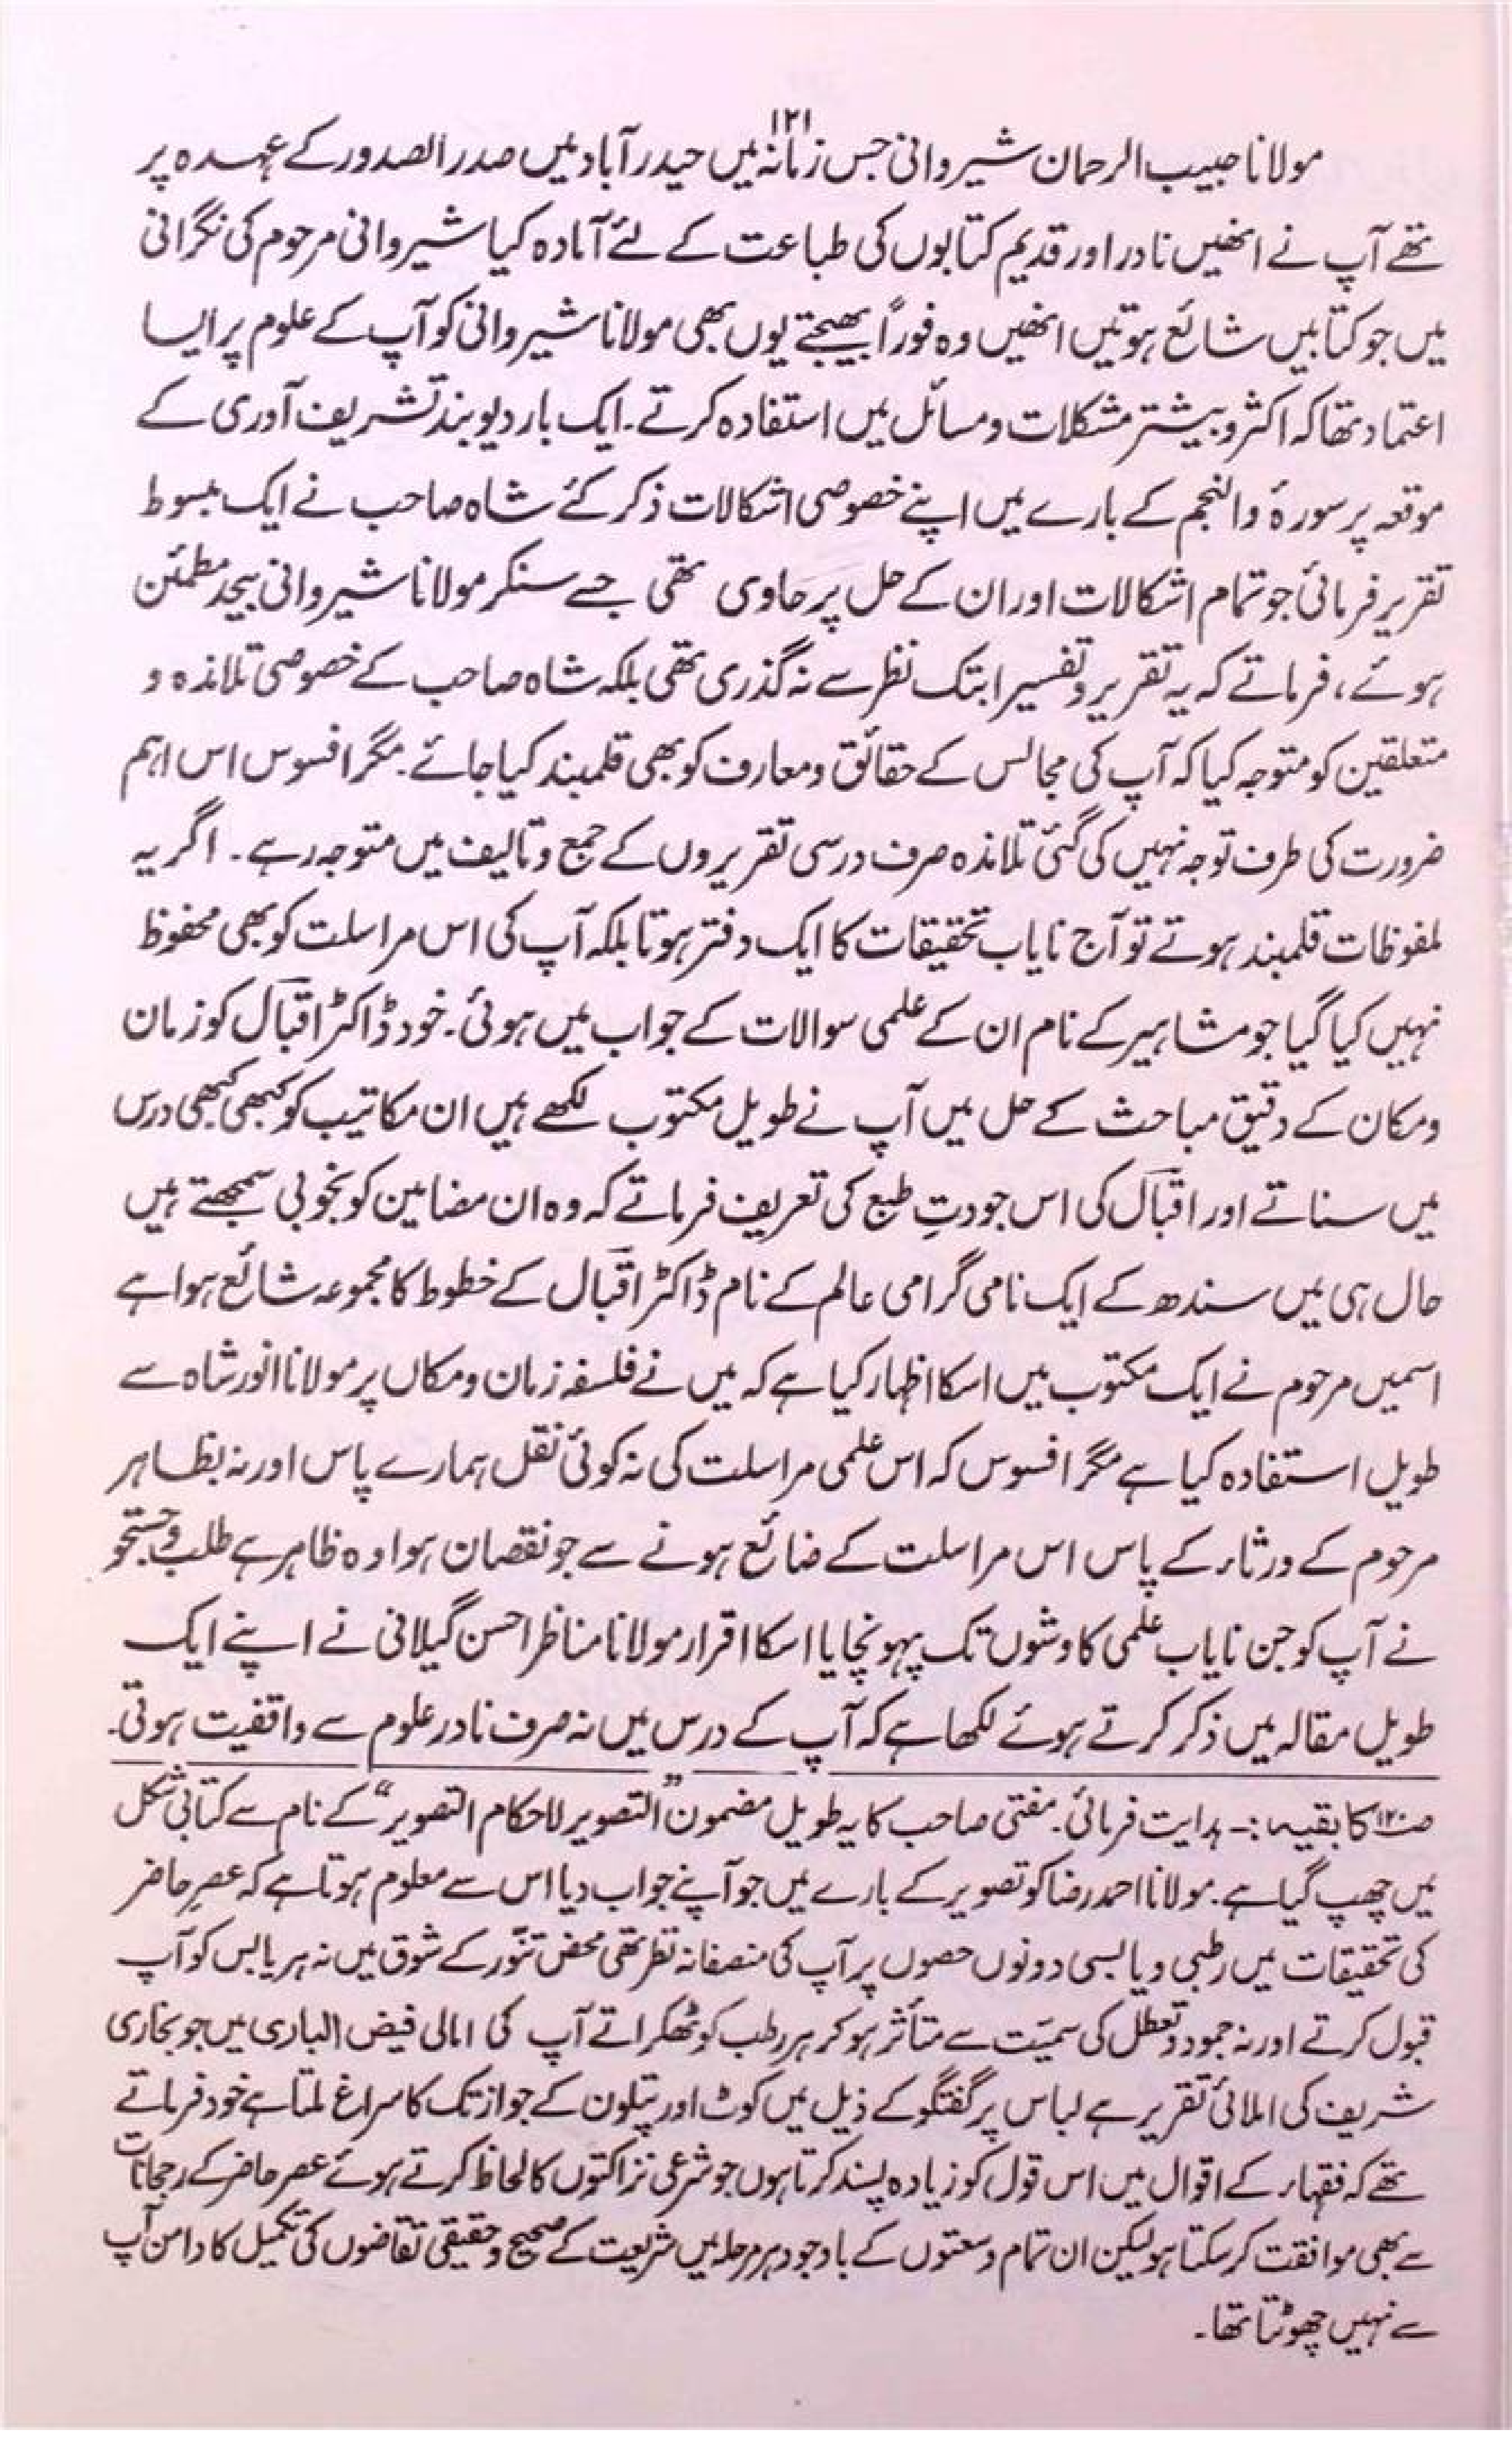 ۱۲۱
مولانا حبیب الرحمان شیروانی جس زمانہ میں حیدرآباد میں صدر الصدور کے عہدہ پر
تھے آپ نے انھیں نادر اور قدیم کتابوں کی طباعت کے لئے آمادہ کیا شیروانی مرحوم کی نگرانی
میں جو کتابیں شائع ہوتیں انھیں وہ فوراً بھیجتے یوں بھی مولانا شیروانی کو آپ کے علوم پر ایسا
اعتماد تھا کہ اکثر و بیشتر مشکلات و مسائل میں استفادہ کرتے۔ ایک بار دیوبند تشریف آوری کے
موقعہ پر سورۂ والنجم کے بارے میں اپنے خصوصی اشکالات ذکر کئے شاہ صاحب نے ایک مبسوط
تقریر فرمائی جو تمام اشکالات اور ان کے حل پر حاوی تھی جسے سنکر مولانا شیروانی بیحد مطمئن
ہوئے، فرماتے کہ یہ تقریر و تفسیر ابتک نظر سے نہ گذری تھی بلکہ شاہ صاحب کے خصوصی تلامذہ و
متعلقین کو متوجہ کیا کہ آپ کی مجالس کے حقائق و معارف کو بھی قلمبند کیا جائے۔ مگر افسوس اس اہم
ضرورت کی طرف توجہ نہیں کی گئی تلامذہ صرف درسی تقریروں کے جمع و تالیف میں متوجہ رہے۔ اگر یہ
ملفوظات قلمبند ہوتے تو آج نایاب تحقیقات کا ایک دفتر ہوتا بلکہ آپ کی اس مراسلت کو بھی محفوظ
نہیں کیا گیا جو مشاہیر کے نام ان کے علمی سوالات کے جواب میں ہوئی۔ خود ڈاکٹر اقبال کو زمان
و مکان کے دقیق مباحث کے حل میں آپ نے طویل مکتوب لکھے ہیں ان مکاتیب کو کبھی کبھی درس
میں سناتے اور اقبال کی اس جودتِ طبع کی تعریف فرماتے کہ وہ ان مضامین کو بخوبی سمجھتے ہیں
حال ہی میں سندھ کے ایک نامی گرامی عالم کے نام ڈاکٹر اقبال کے خطوط کا مجموعہ شائع ہوا ہے
اسمیں مرحوم نے ایک مکتوب میں اسکا اظہار کیا ہے کہ میں نے فلسفہ زمان و مکاں پر مولانا انور شاہ سے
طویل استفادہ کیا ہے مگر افسوس کہ اس علمی مراسلت کی نہ کوئی نقل ہمارے پاس اور نہ بظاہر
مرحوم کے ورثاء کے پاس اس مراسلت کے ضائع ہونے سے جو نقصان ہوا وہ ظاہر ہے طلب و جستجو
نے آپ کو جن نایاب علمی کاوشوں تک پہونچایا اسکا اقرار مولانا مناظر احسن گیلانی نے اپنے ایک
طویل مقالہ میں ذکر کرتے ہوئے لکھا ہے کہ آپ کے درس میں نہ صرف نادر علوم سے واقفیت ہوتی۔
صـ۱۲۰ کا بقیہ:۔ ہدایت فرمائی۔ مفتی صاحب کا یہ طویل مضمون "التصویر لاحکام التصویر" کے نام سے کتابی شکل
میں چھپ گیا ہے۔ مولانا احمد رضا کو تصویر کے بارے میں جو آپنے جواب دیا اس سے معلوم ہوتا ہے کہ عصرِ حاضر
کی تحقیقات میں رطبی و یابسی دونوں حصوں پر آپ کی منصفانہ نظر تھی محض تنّور کے شوق میں نہ ہر یابس کو آپ
قبول کرتے اور نہ جمود و تعطل کی سمیّت سے متأثر ہو کر ہر رطب کو ٹھکراتے آپ کی امالی فیض الباری میں جو بخاری
شریف کی املائی تقریر ہے لباس پر گفتگو کے ذیل میں کوٹ اور پتلون کے جواز تک کا سراغ ملتا ہے خود فرماتے
تھے کہ فقہاء کے اقوال میں اس قول کو زیادہ پسند کرتا ہوں جو شرعی نزاکتوں کا لحاظ کرتے ہوئے عصرِ حاضر کے رجحانات
سے بھی موافقت کر سکتا ہو لیکن ان تمام وسعتوں کے باوجود ہر مرحلہ میں شریعت کے صحیح و حقیقی تقاضوں کی تکمیل کا دامن آپ
سے نہیں چھوٹتا تھا۔